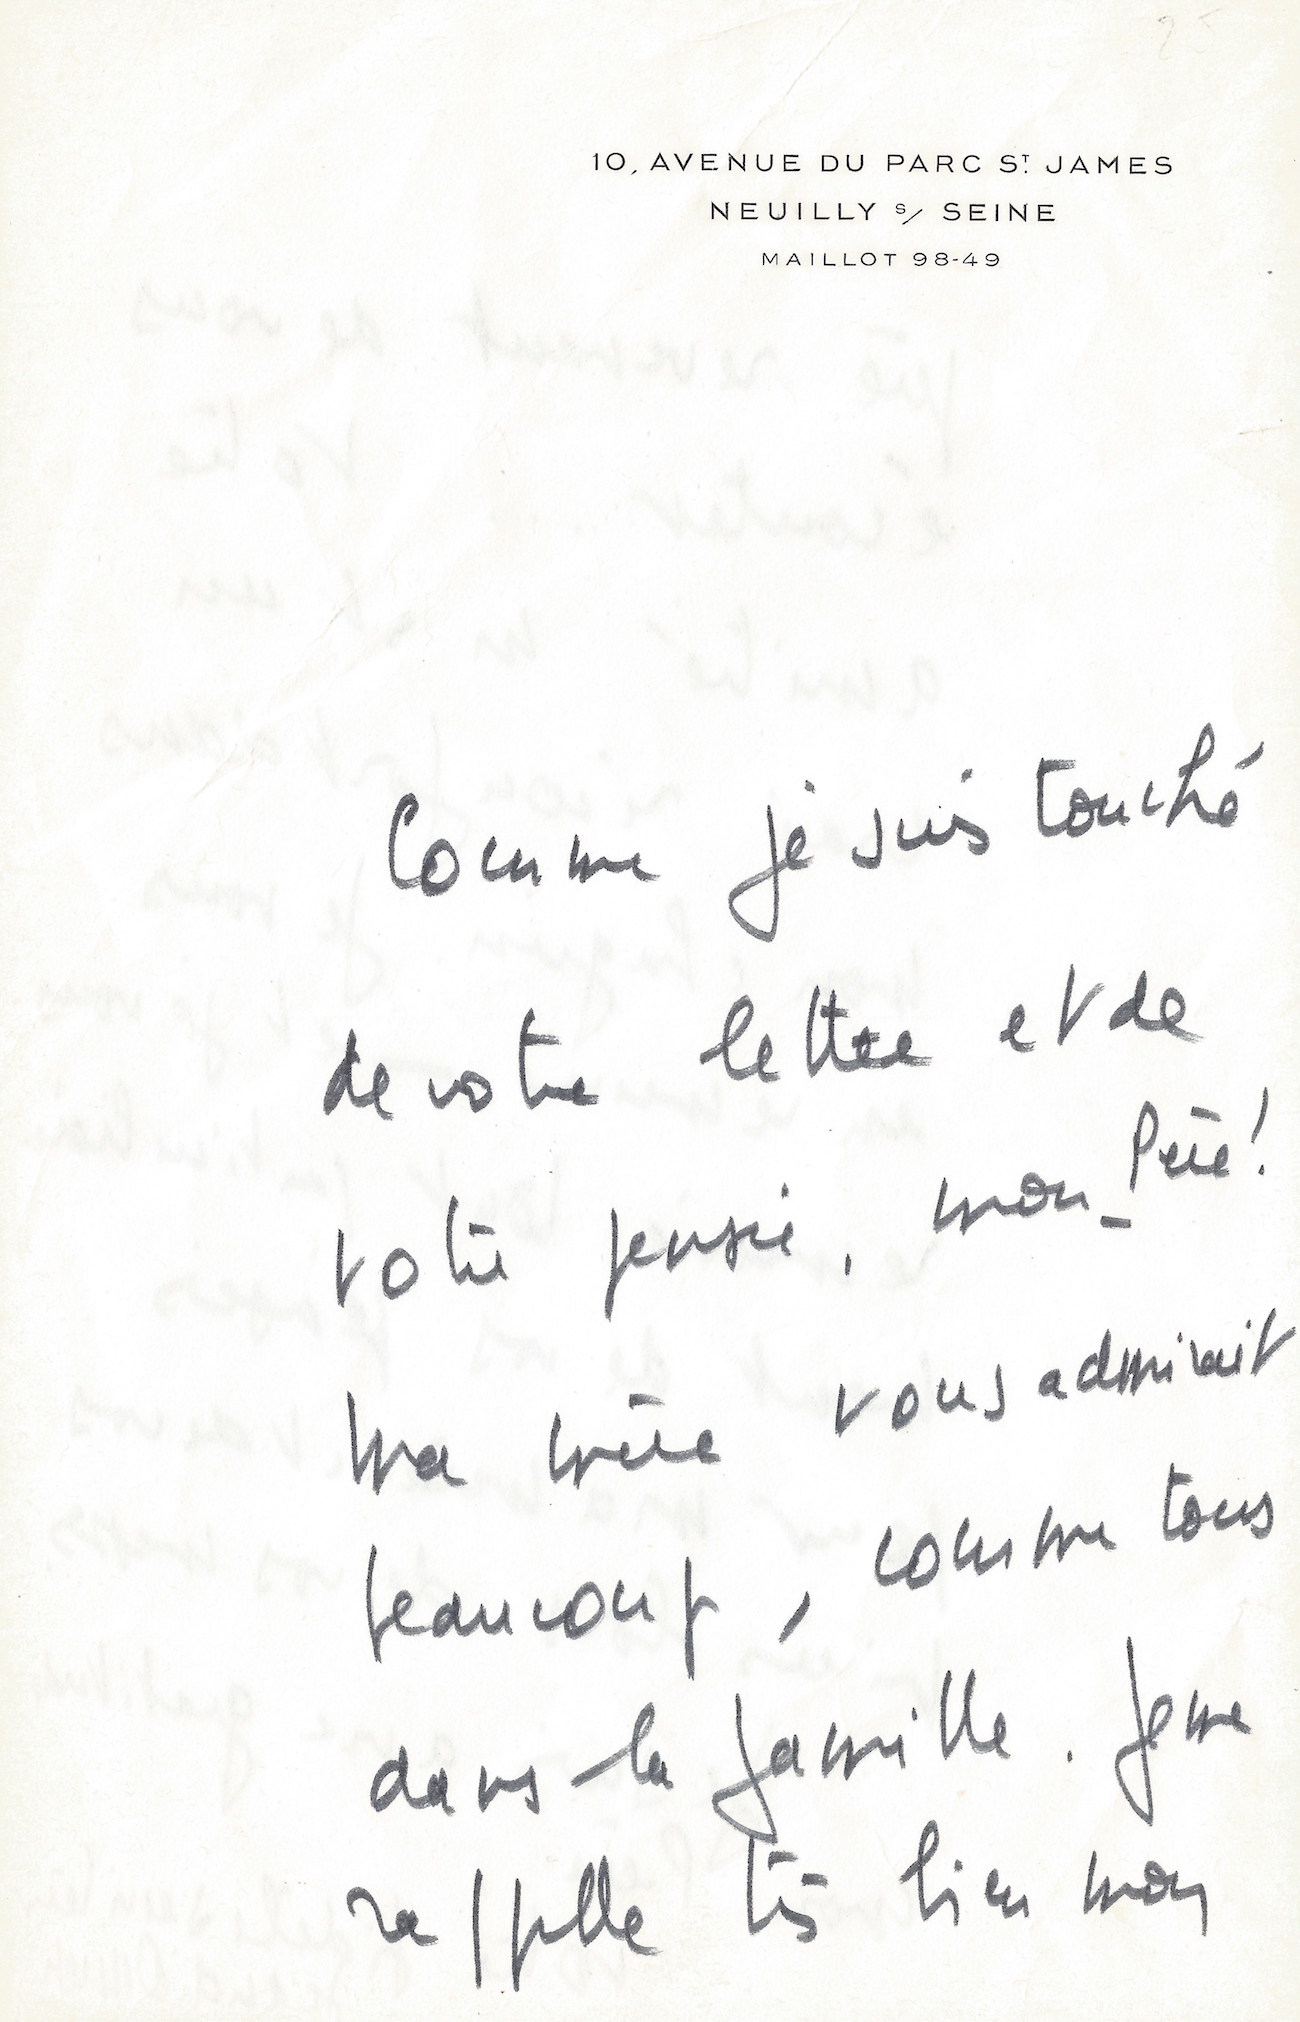 10, AVENUE DU PARC ST JAMES
NEUILLY s/ SEINE
MAILLOT 98-49
Comme je suis touché
de votre lettre et de
votre pensée, mon Père !
Ma mère vous admirait
beaucoup, comme tous
dans la famille. Je me
rappelle très bien mon